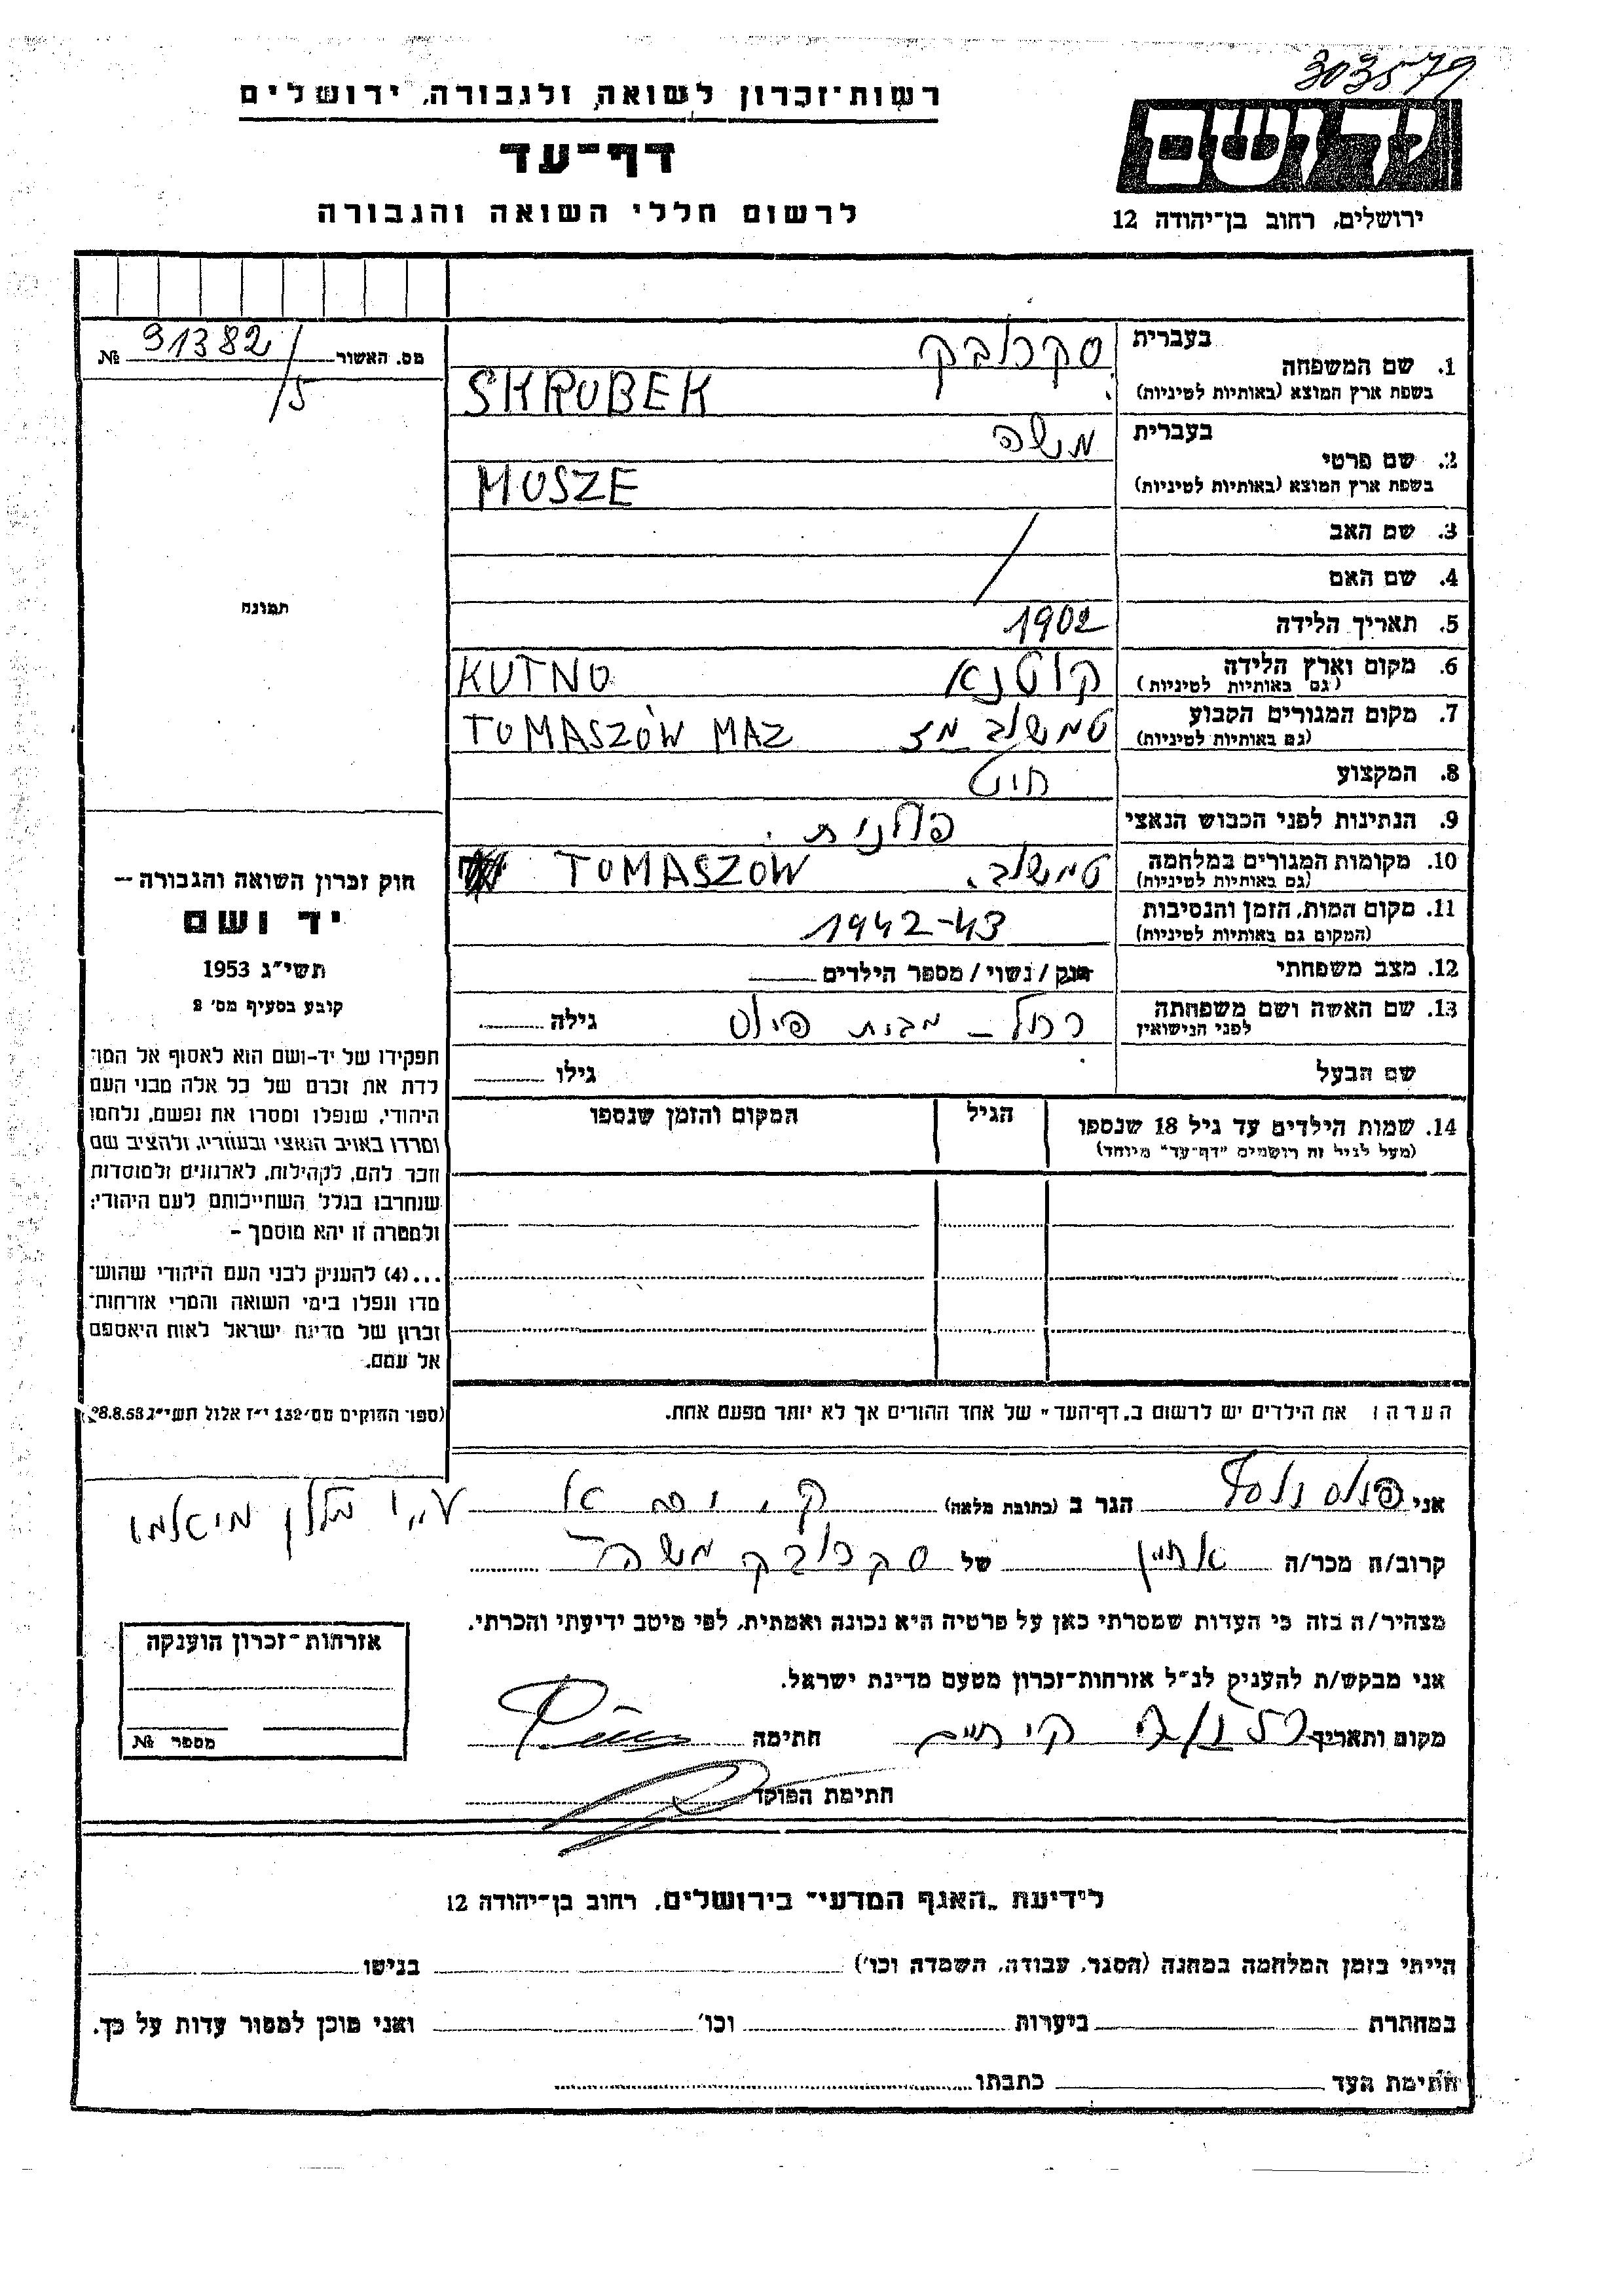 303579
רשות־זכרון לשואה ולגבורה, ירושלים
יד ושם
דף־עד
לרשום חללי השואה והגבורה
ירושלים, רחוב בן־יהודה 12
מס. האשור 91382/5 №
1. שם המשפחה בעברית סקרובק
בשפת ארץ המוצא (באותיות לטיניות) SKRUBEK
2. שם פרטי בעברית משה
בשפת ארץ המוצא (באותיות לטיניות) MOSZE
3. שם האב
4. שם האם
5. תאריך הלידה 1902
6. מקום וארץ הלידה (גם באותיות לטיניות) קוטנא KUTNO
7. מקום המגורים הקבוע (גם באותיות לטיניות) טמשוב מז TOMASZÓW MAZ
8. המקצוע חיט
9. הנתינות לפני הכבוש הנאצי פולנית.
10. מקומות המגורים במלחמה (גם באותיות לטיניות) טמשוב. TOMASZOW
11. מקום המות, הזמן והנסיבות (המקום גם באותיות לטיניות) 1942-43
12. מצב משפחתי רוק / נשוי / מספר הילדים
13. שם האשה ושם משפחתה לפני הנישואין רחל - מבית גילה
שם הבעל גילו
14. שמות הילדים עד גיל 18 שנספו הגיל המקום והזמן שנספו
(מעל לגיל זה רושמים "דף־עד" מיוחד)
תמונה
חוק זכרון השואה והגבורה —
יד ושם
תשי"ג 1953
קובע בסעיף מס' 2
תפקידו של יד-ושם הוא לאסוף אל המו־
לדת את זכרם של כל אלה מבני העם
היהודי, שנפלו ומסרו את נפשם, נלחמו
ומרדו באויב הנאצי ובעוזריו, ולהציב שם
וזכר להם, לקהילות, לארגונים ולמוסדות
שנחרבו בגלל השתייכותם לעם היהודי;
ולמטרה זו יהא מוסמך —
...(4) להעניק לבני העם היהודי שהוש־
מדו ונפלו בימי השואה והמרי אזרחות־
זכרון של מדינת ישראל לאות היאספם
אל עמם.
(ספר החוקים מס' 132 י"ז אלול תשי"ג 28.8.53)
הערה: את הילדים יש לרשום ב„דף־העד" של אחד ההורים אך לא יותר מפעם אחת.
אני הגר ב (כתובת מלאה)
קרוב/ה מכר/ה של סקרובק משה
מצהיר/ה בזה כי העדות שמסרתי כאן על פרטיה היא נכונה ואמתית, לפי מיטב ידיעתי והכרתי.
אני מבקש/ת להעניק לנ"ל אזרחות־זכרון מטעם מדינת ישראל.
מקום ותאריך חתימה
חתימת הפוקד
אזרחות־זכרון הוענקה
מספר №
לידיעת „האגף המדעי" בירושלים, רחוב בן־יהודה 12
הייתי בזמן המלחמה במחנה (הסגר, עבודה, השמדה וכו') בגיטו
במחתרת ביערות וכו' ואני מוכן למסור עדות על כך.
חתימת העד כתבתו